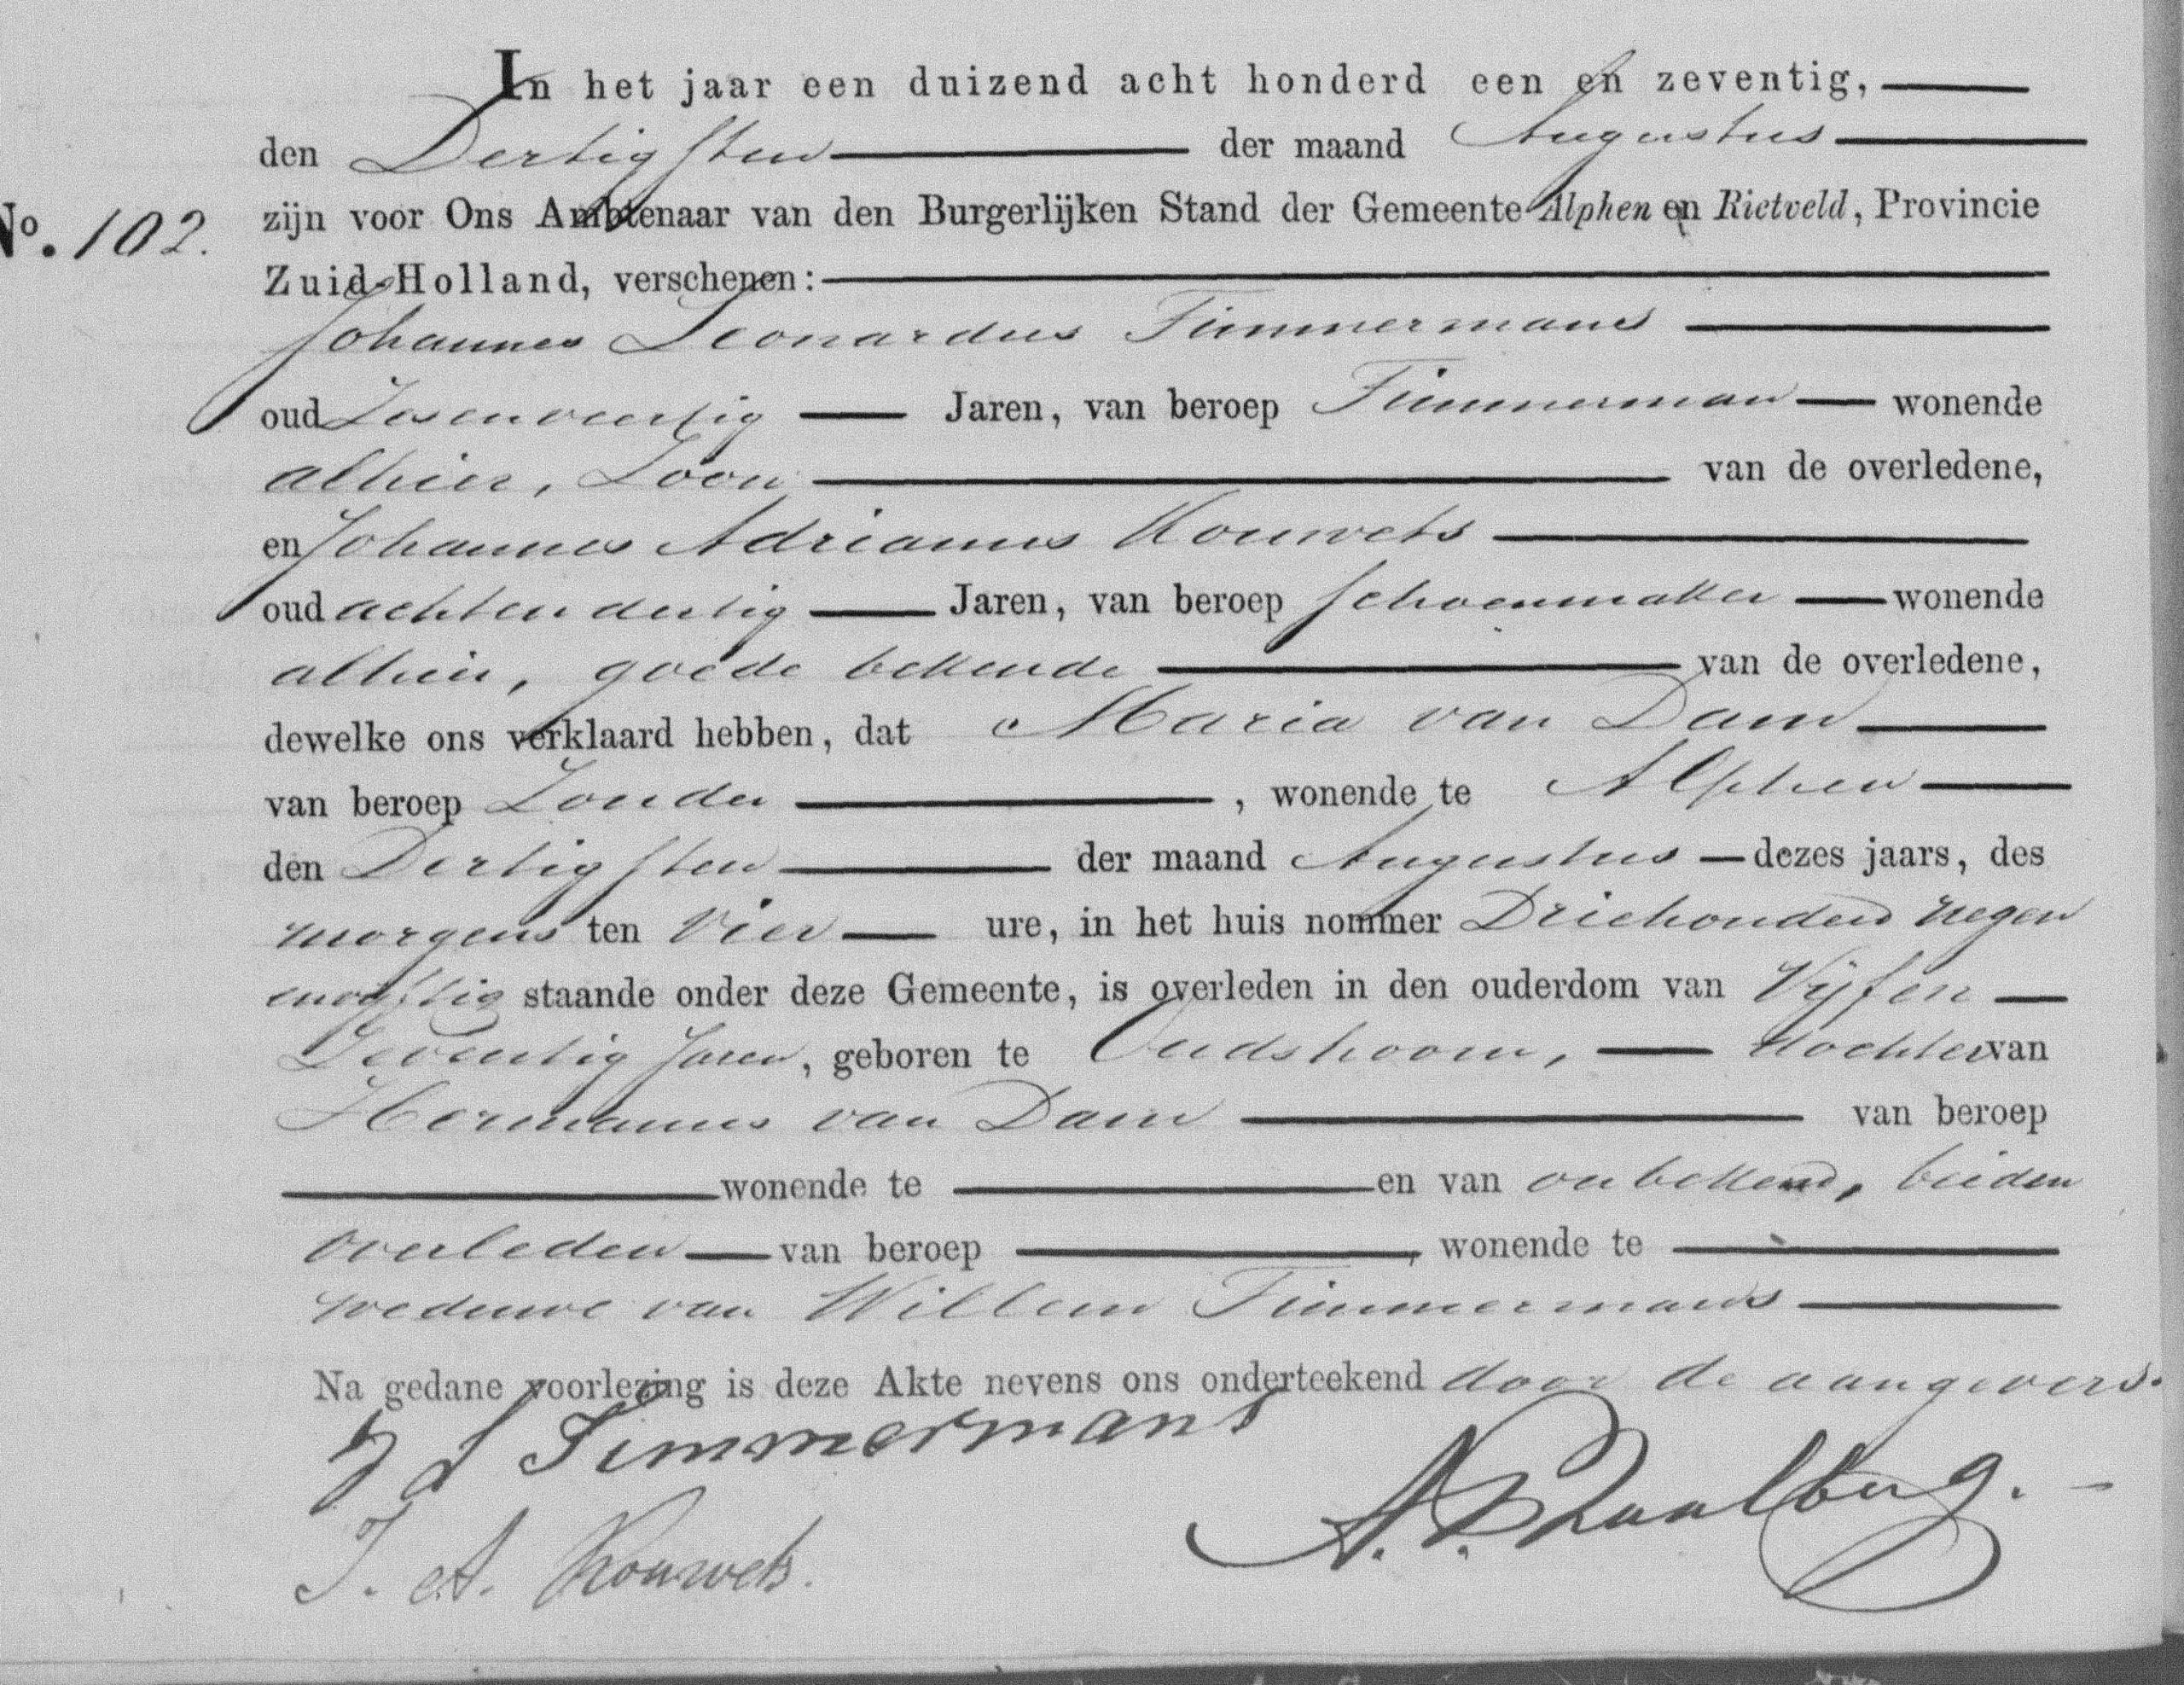 In het jaar een duizend acht honderd een en zeventig,
den Dertigsten der maand Augustus
No. 102. zijn voor Ons Ambtenaar van den Burgerlijken Stand der Gemeente Alphen en Rietveld, Provincie
Zuid-Holland, verschenen:
Johannes Leonardus Timmermans
oud Zesenveertig Jaren, van beroep Timmerman wonende
alhier, Zoon van de overledene,
en Johannes Adrianus Kouwets
oud achtendertig Jaren, van beroep Schoenmaker wonende
alhier, goede bekende van de overledene,
dewelke ons verklaard hebben, dat Maria van Dam
van beroep Zonder, wonende te Alphen
den Dertigsten der maand Augustus dezes jaars, des
morgens ten Vier ure, in het huis nommer Driehonderd negen
envijftig staande onder deze Gemeente, is overleden in den ouderdom van Vijfen
Zeventig Jaren, geboren te Oudshoorn, dochter van
Hermanus van Dam van beroep
wonende te en van onbekend, beiden
overleden van beroep, wonende te
weduwe van Willem Timmermans
Na gedane voorlezing is deze Akte nevens ons onderteekend door de aangevers.
J L Timmermans
J. A. Kouwets.